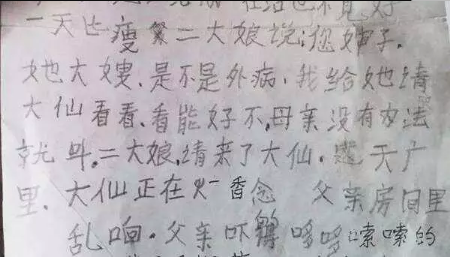 一天比瘦繁二大娘说;您婶子.
她大嫂.是不是外病,我给她请
大仙看看.看能好不,母亲没有方法
就叫.二大娘,请来了大仙.感天广
里.大仙正在火香念 父亲房间里
乱响.父亲吓得哆哆嗦嗦的